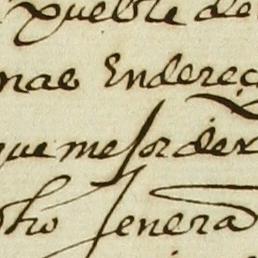 pueble de
nas Endereç
que mejor der
otro Jenera